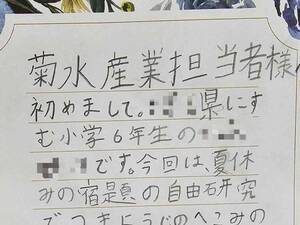 菊水産業担当者様へ
初めまして。県にす
む小学6年生の
です。今回は、夏休
みの宿題の自由研究
でつまようじのへこみの